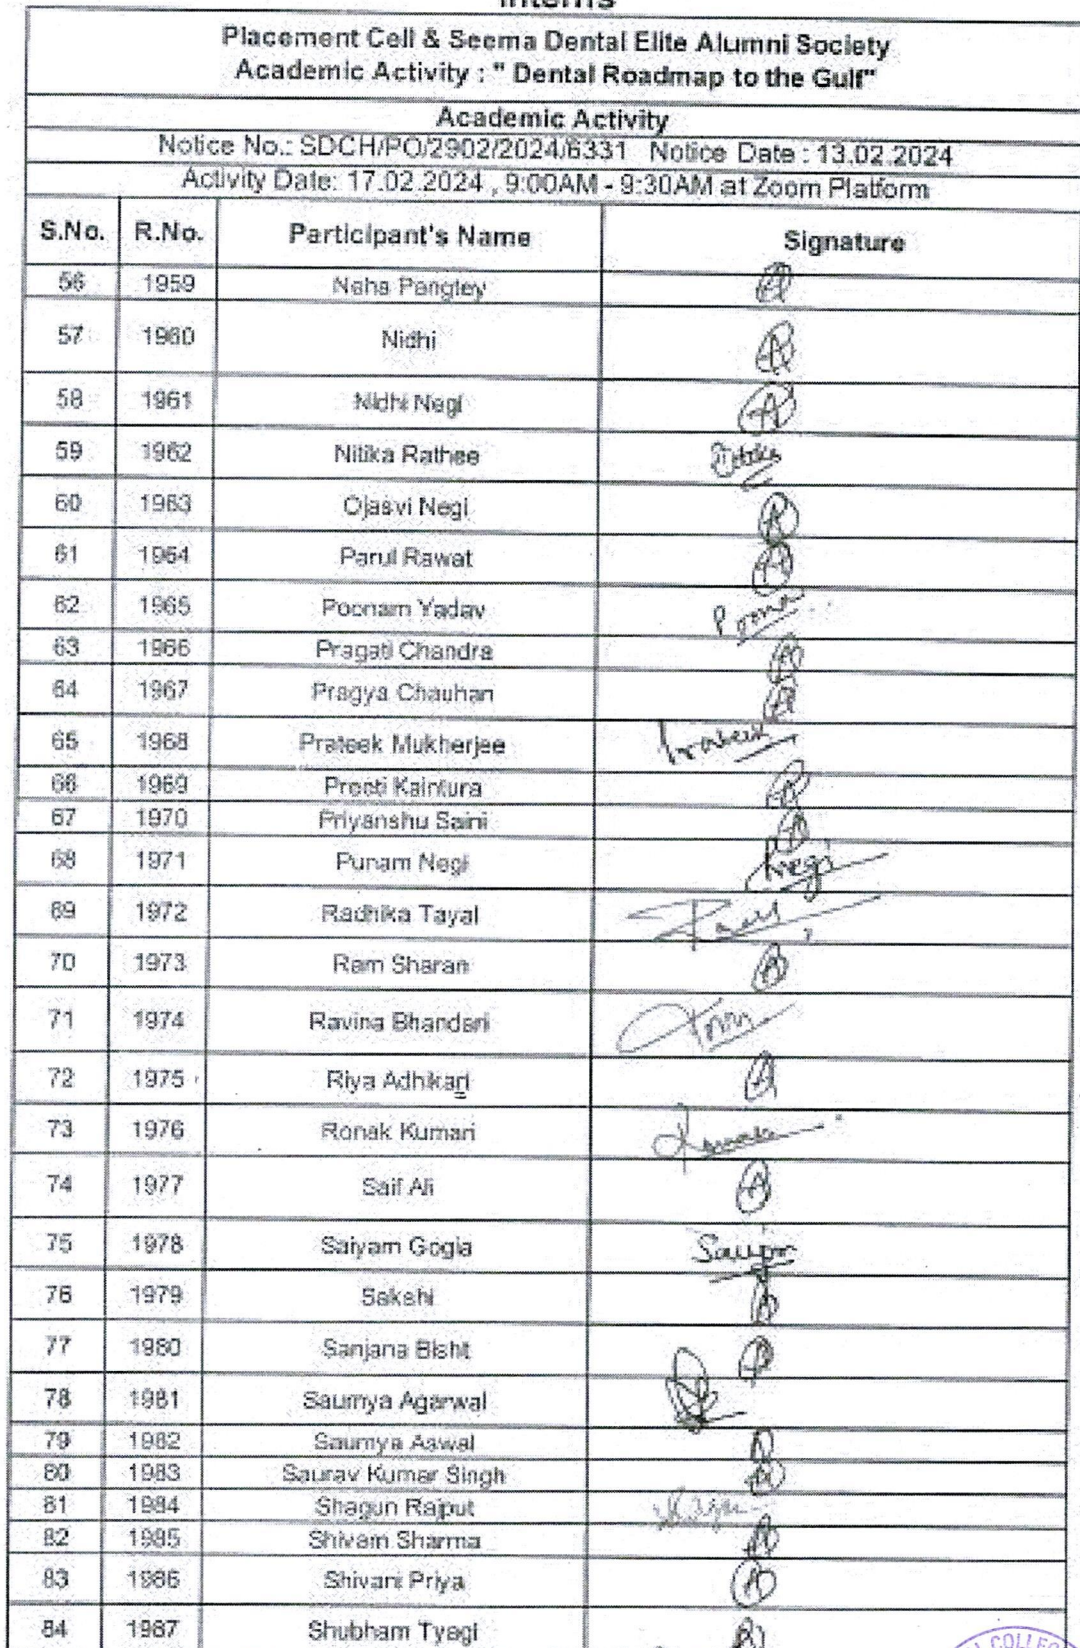 Interns
Placement Cell & Seema Dental Elite Alumni Society
Academic Activity : " Dental Roadmap to the Gulf"
Academic Activity
Notice No.: SDCH/PO/2902/2024/6331 Notice Date : 13.02.2024
Activity Date: 17.02.2024 , 9:00AM - 9:30AM at Zoom Platform
S.No. R.No. Participant's Name Signature
56 1959 Neha Pangtey A
57 1960 Nidhi A
58 1961 Nidhi Negi A
59 1962 Nitika Rathee
60 1963 Ojasvi Negi A
61 1964 Parul Rawat A
62 1965 Poonam Yadav Poonam
63 1966 Pragati Chandra A
64 1967 Pragya Chauhan A
65 1968 Prateek Mukherjee Prateek
66 1969 Preeti Kaintura A
67 1970 Priyanshu Saini A
68 1971 Punam Negi Negi
69 1972 Radhika Tayal
70 1973 Ram Sharan A
71 1974 Ravina Bhandari
72 1975 Riya Adhikari A
73 1976 Ronak Kumari
74 1977 Saif Ali A
75 1978 Saiyam Gogia Saiyam
76 1979 Sakshi A
77 1980 Sanjana Bisht A
78 1981 Saumya Agarwal
79 1982 Saumya Aswal A
80 1983 Saurav Kumar Singh A
81 1984 Shagun Rajput
82 1985 Shivam Sharma A
83 1986 Shivani Priya A
84 1987 Shubham Tyagi A
COLLEGE